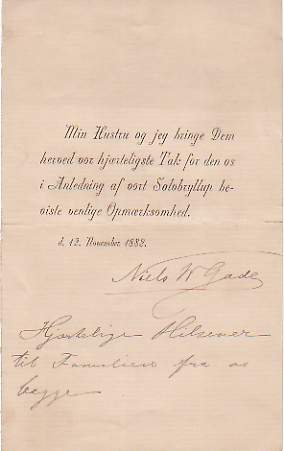 Min Hustru og jeg bringe Dem
herved vor hjærteligste Tak for den os
i Anledning af vort Sølvbryllup be-
viste venlige Opmærksomhed.
d. 12. November 1882.
Niels W Gade
Hjertelige Hilsener
til Familien fra os
begge